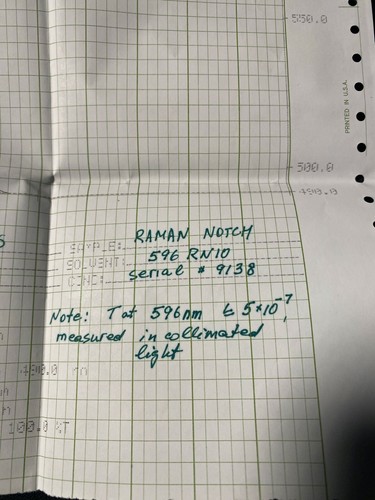 550.0
PRINTED IN U.S.A.
500.0
490.0
SAMPLE: RAMAN NOTCH
SOLVENT: 596 RN10
CONC: serial # 9138
Note: T at 596nm is 5×10⁻⁷,
measured in collimated
light
490.0 nm
100.0 %T